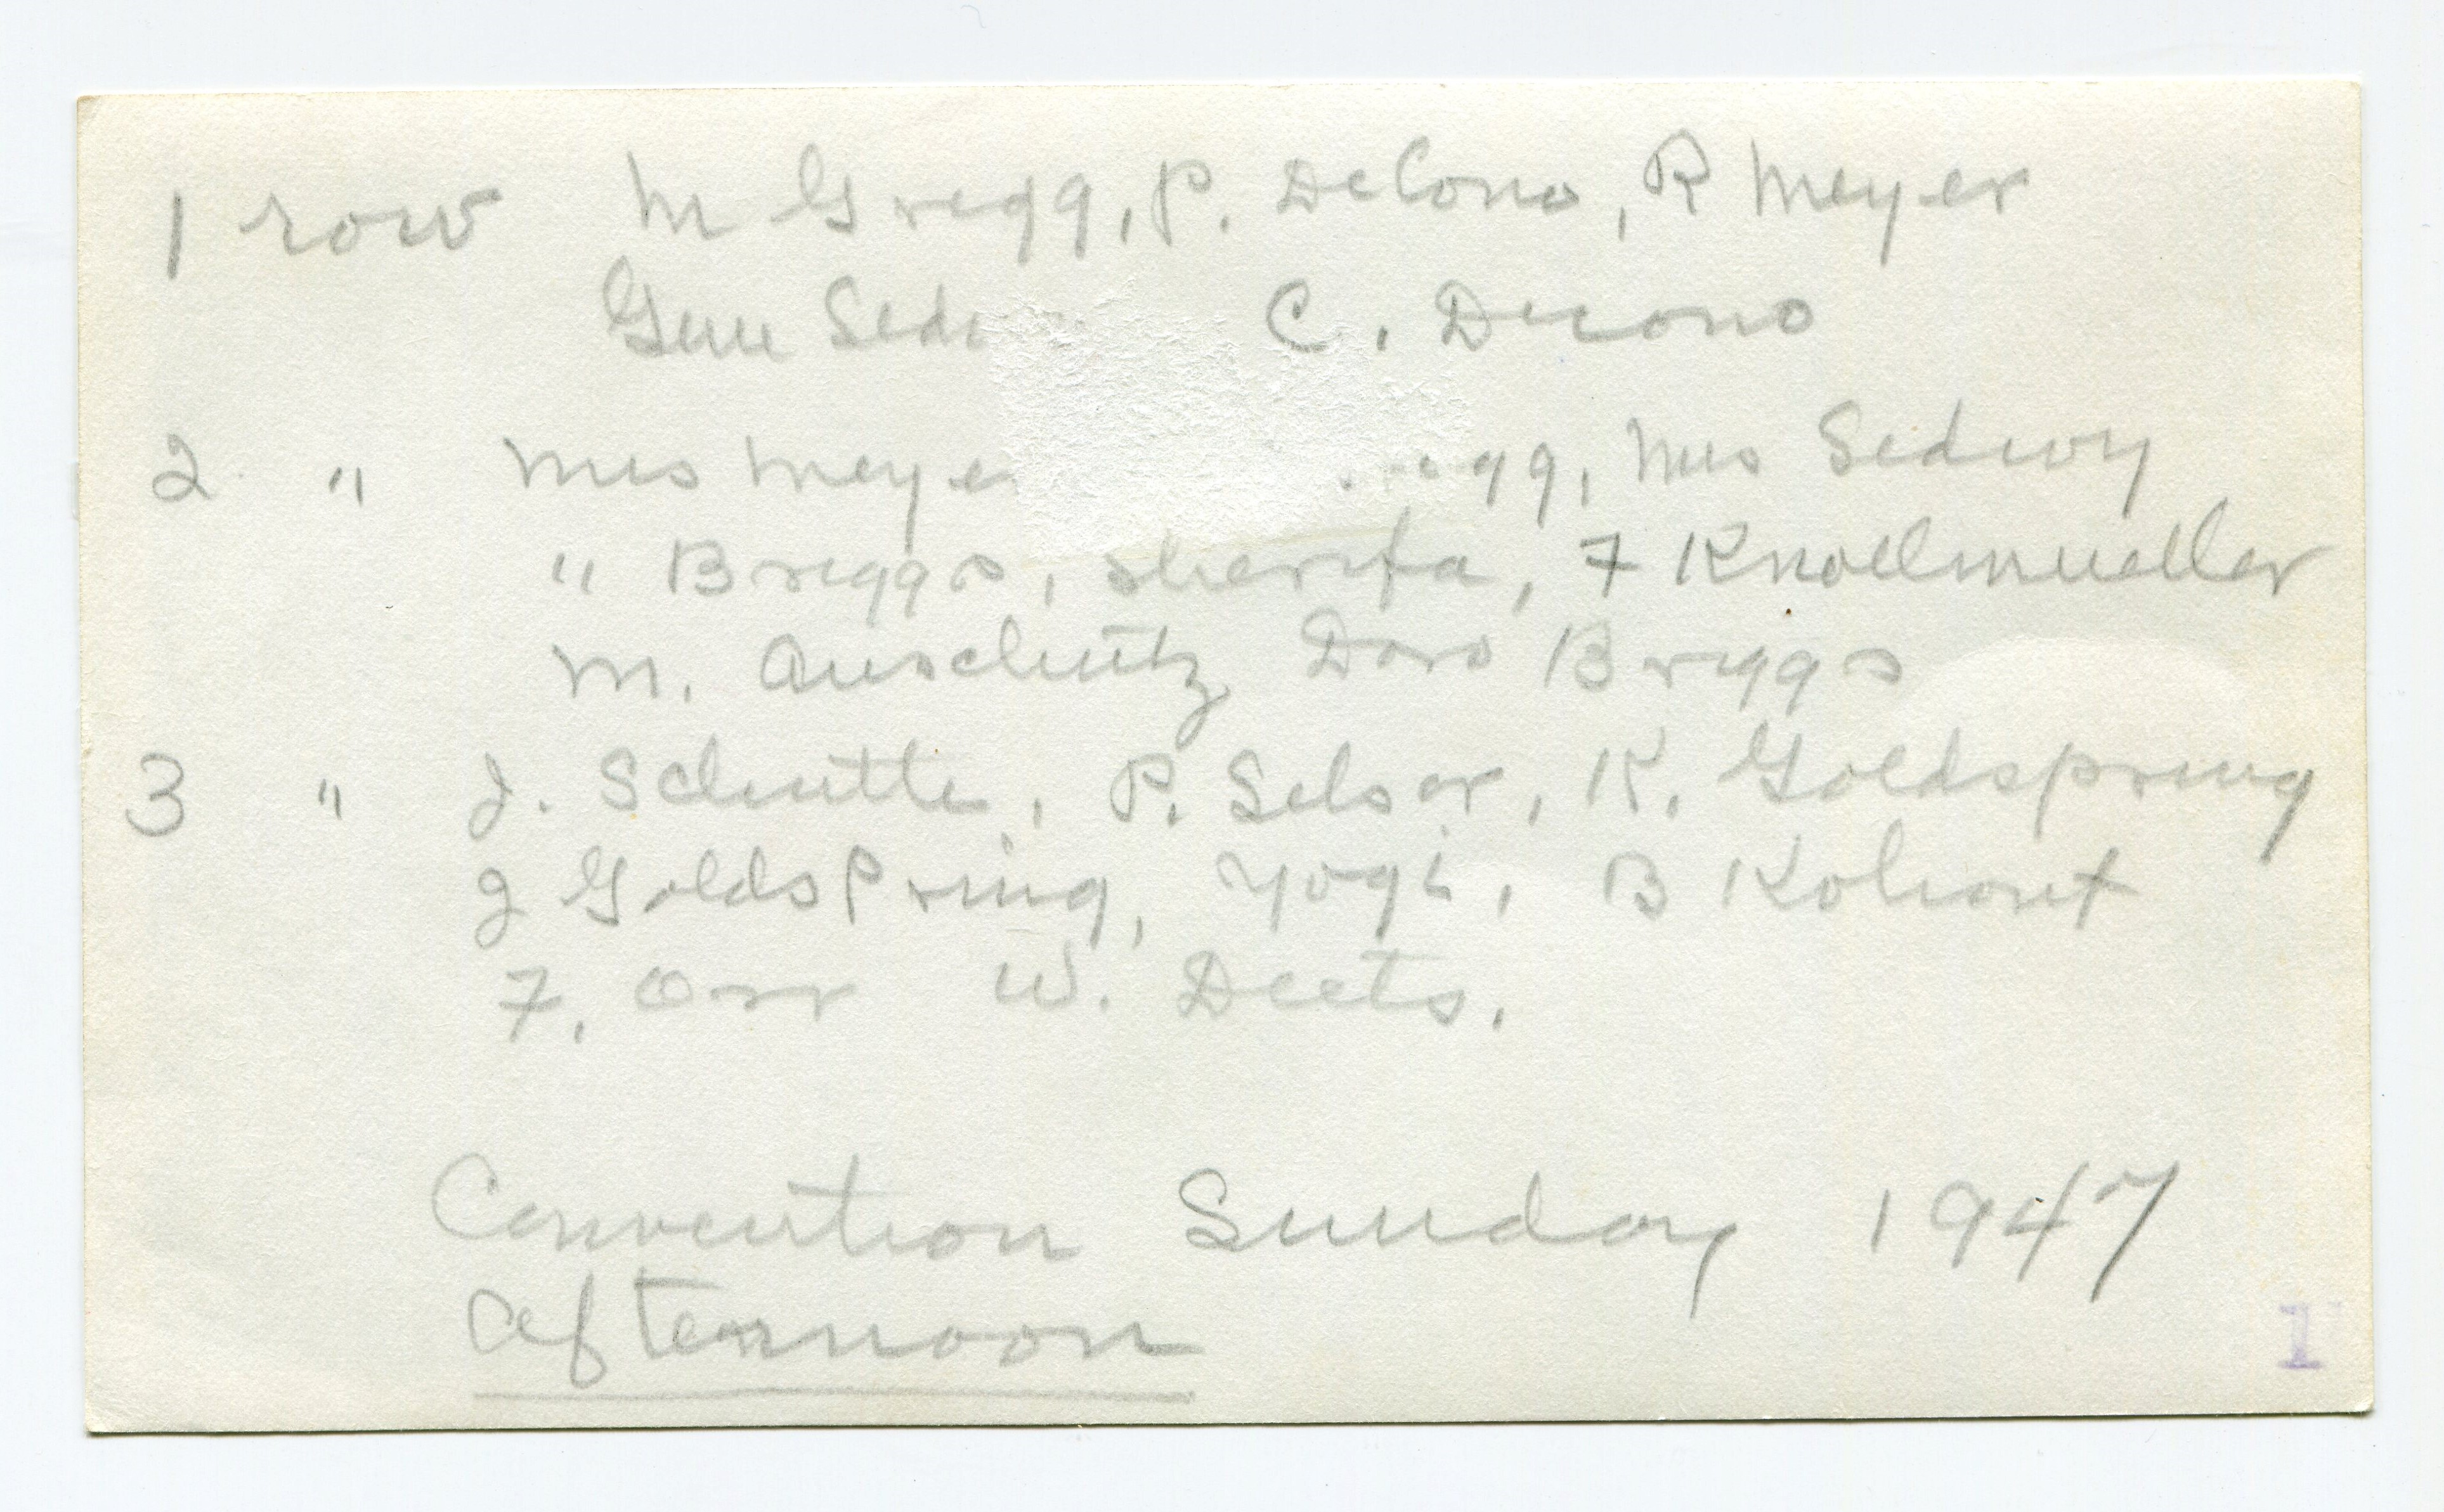 1 row M Gregg, P. DeCono, R Meyer
Gene C. Decono
2 " Mrs Meyer Mrs Sedwy
" Briggs, sherifa, F Knollmueller
M. Auschutz Doro Briggs
3 " J. Schutte, P. Selser, K. Goldspring
J GoldsPring, Yogi, B Kohout
F. Orr W. Deets.
Convention Sunday 1947
afternoon
1